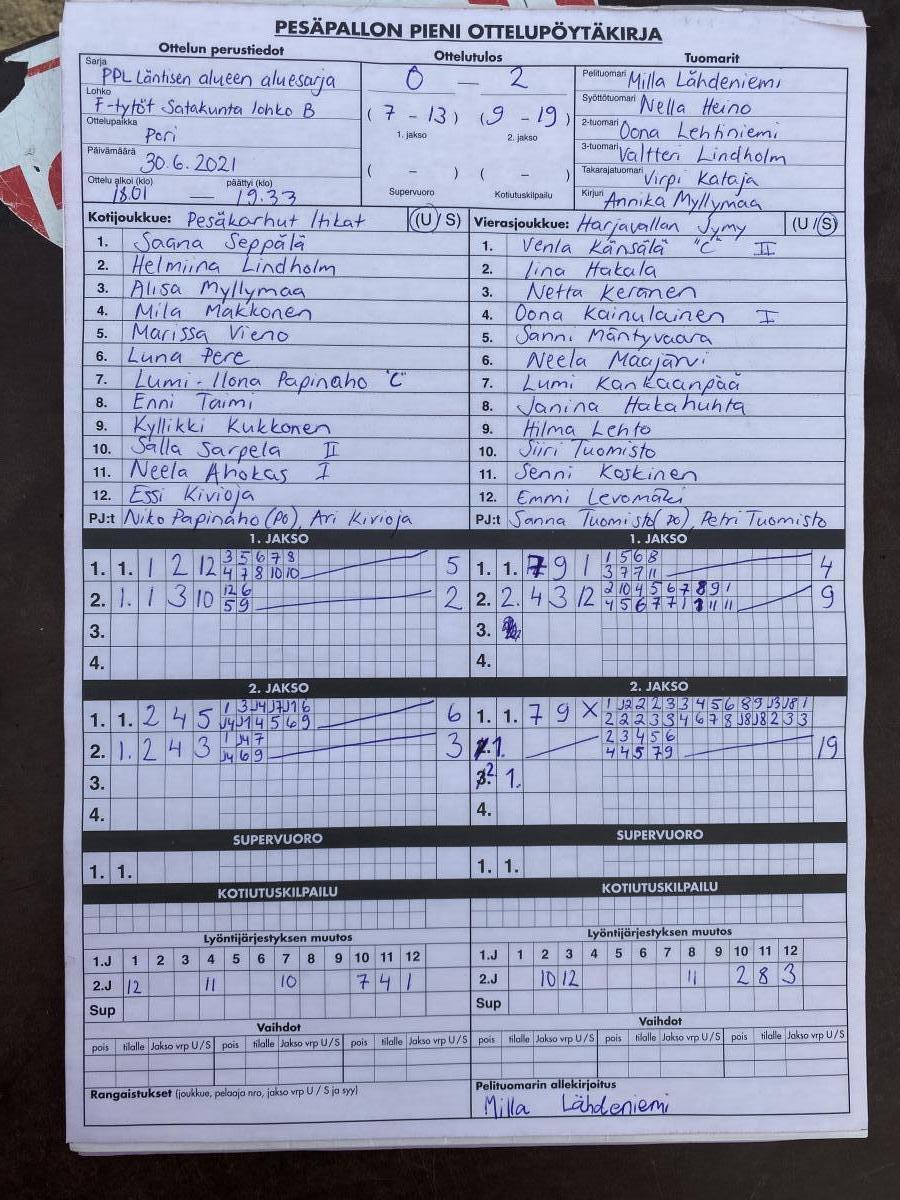 PESÄPALLON PIENI OTTELUPÖYTÄKIRJA
Ottelun perustiedot
Ottelutulos
Tuomarit
Sarja PPL Läntisen alueen aluesarja
Lohko F-tytöt Satakunta lohko B
Ottelupaikka Pori
Päivämäärä 30.6.2021
Ottelu alkoi (klo) päättyi (klo)
18.01 — 19.33
0 — 2
( 7 - 13 ) ( 9 - 19 )
1. jakso 2. jakso
( - ) ( - )
Supervuoro Kotiutuskilpailu
Pelituomari Milla Lähdeniemi
Syöttötuomari Nella Heino
2-tuomari Oona Lehtiniemi
3-tuomari Valtteri Lindholm
Takarajatuomari Virpi Kataja
Kirjuri Annika Myllymaa
Kotijoukkue: Pesäkarhut Itikat (U / S)
1. Saana Seppälä
2. Helmiina Lindholm
3. Alisa Myllymaa
4. Mila Makkonen
5. Marissa Vieno
6. Luna Pere
7. Lumi-Ilona Papinaho "C"
8. Enni Taimi
9. Kyllikki Kukkonen
10. Salla Sarpela II
11. Neela Ahokas I
12. Essi Kivioja
PJ:t Niko Papinaho (PO), Ari Kivioja
Vierasjoukkue: Harjavallan Jymy (U / S)
1. Venla Känsälä "C" II
2. Iina Hakala
3. Netta Keränen
4. Oona Kainulainen I
5. Sanni Mäntyvaara
6. Neela Maajärvi
7. Lumi Kankaanpää
8. Janina Hakahuhta
9. Hilma Lehto
10. Siiri Tuomisto
11. Senni Koskinen
12. Emmi Levomäki
PJ:t Sanna Tuomisto (PO), Petri Tuomisto
1. JAKSO
1. 1. 1 2 12 3 5 6 7 8 5
4 7 8 10 10
2. 1. 1 3 10 12 6 2
5 9
3.
4.
1. JAKSO
1. 1. 7 9 1 1 5 6 8 4
3 7 7 11
2. 2. 4 3 12 2 10 4 5 6 7 8 9 1 9
4 5 6 7 7 1 1 11 11
3.
4.
2. JAKSO
1. 1. 2 4 5 1 3 J4 J7 J1 6 6
J4 J1 4 5 6 9
2. 1. 2 4 3 1 J4 7 3
J4 6 9
3.
4.
2. JAKSO
1. 1. 7 9 X 1 J2 2 2 3 3 4 5 6 8 9 J3 J8 1
2 2 2 3 3 4 6 7 8 J8 J8 2 3 3
1. 2 3 4 5 6 19
4 4 5 7 9
2 1.
4.
SUPERVUORO
1. 1.
SUPERVUORO
1. 1.
KOTIUTUSKILPAILU
KOTIUTUSKILPAILU
Lyöntijärjestyksen muutos
1.J 1 2 3 4 5 6 7 8 9 10 11 12
2.J 12 11 10 7 4 1
Sup
Lyöntijärjestyksen muutos
1.J 1 2 3 4 5 6 7 8 9 10 11 12
2.J 10 12 11 2 8 3
Sup
Vaihdot
pois tilalle Jakso vrp U / S pois tilalle Jakso vrp U / S pois tilalle Jakso vrp U / S
Vaihdot
pois tilalle Jakso vrp U / S pois tilalle Jakso vrp U / S pois tilalle Jakso vrp U / S
Rangaistukset (joukkue, pelaaja nro, jakso vrp U / S ja syy)
Pelituomarin allekirjoitus
Milla Lähdeniemi